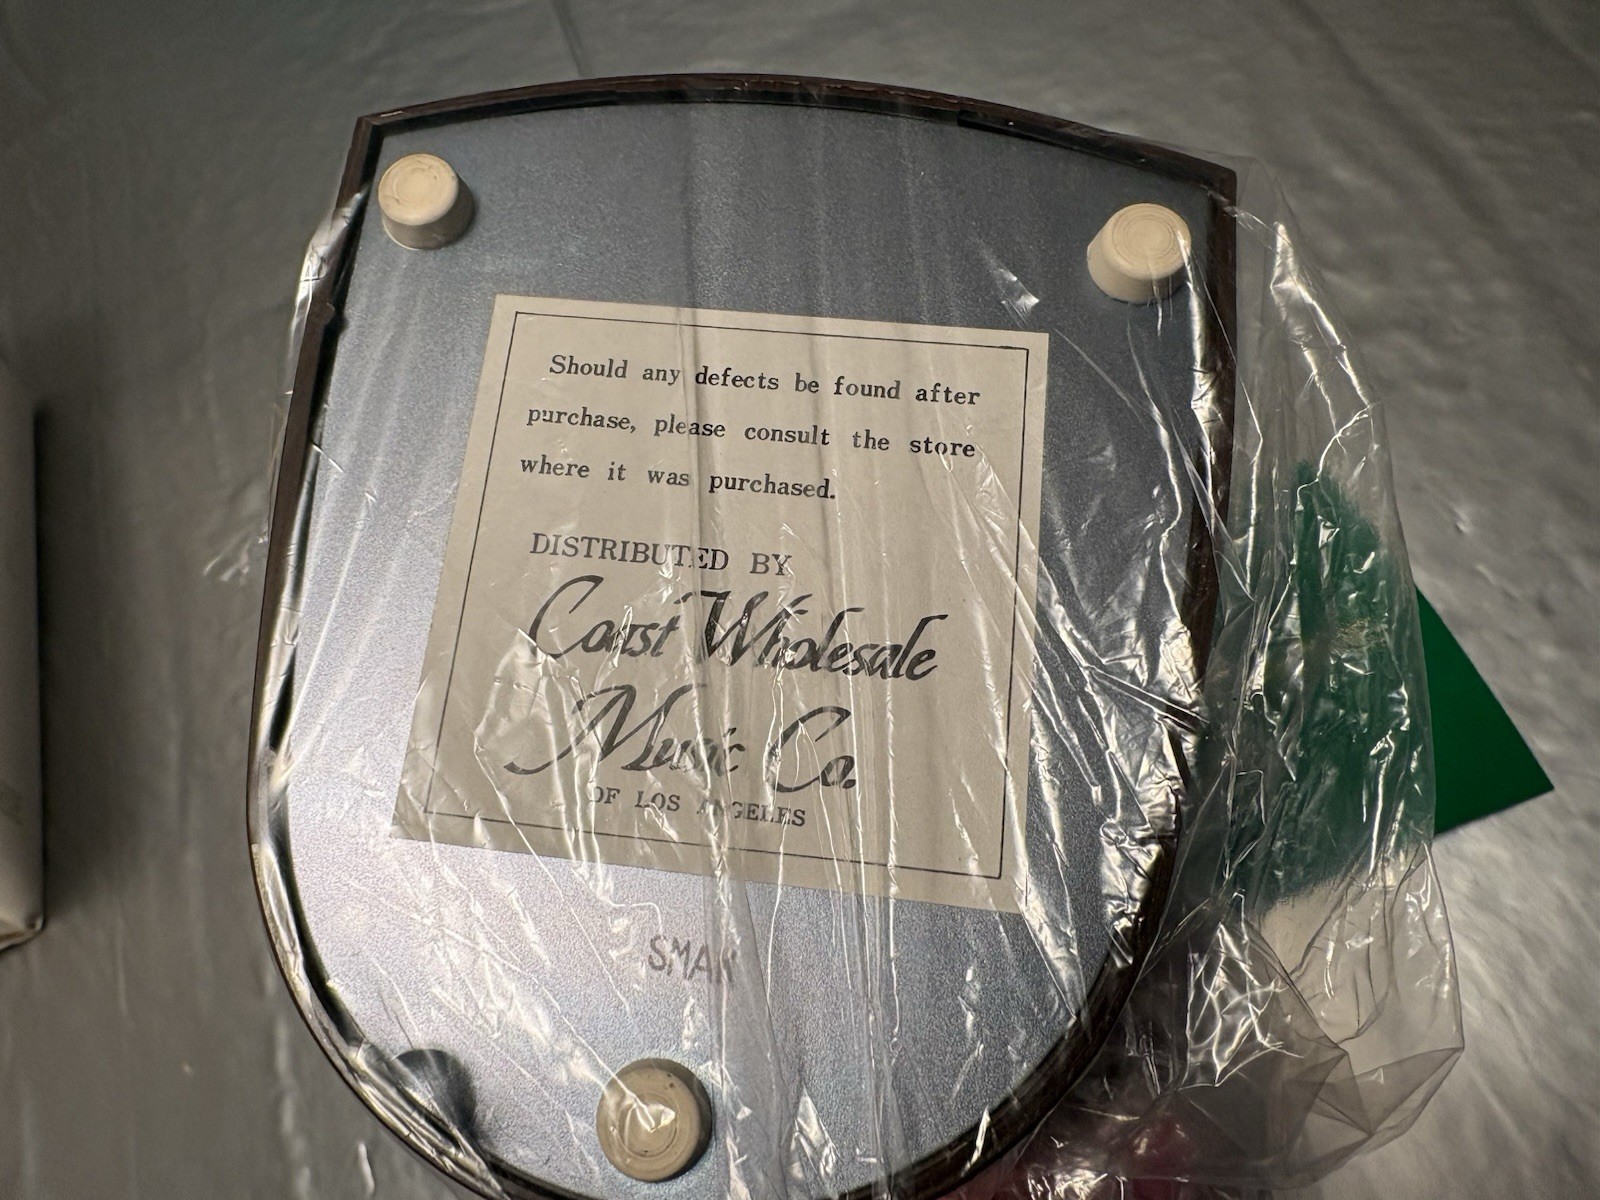 Should any defects be found after
purchase, please consult the store
where it was purchased.
DISTRIBUTED BY
Coast Wholesale
Music Co.
OF LOS ANGELES